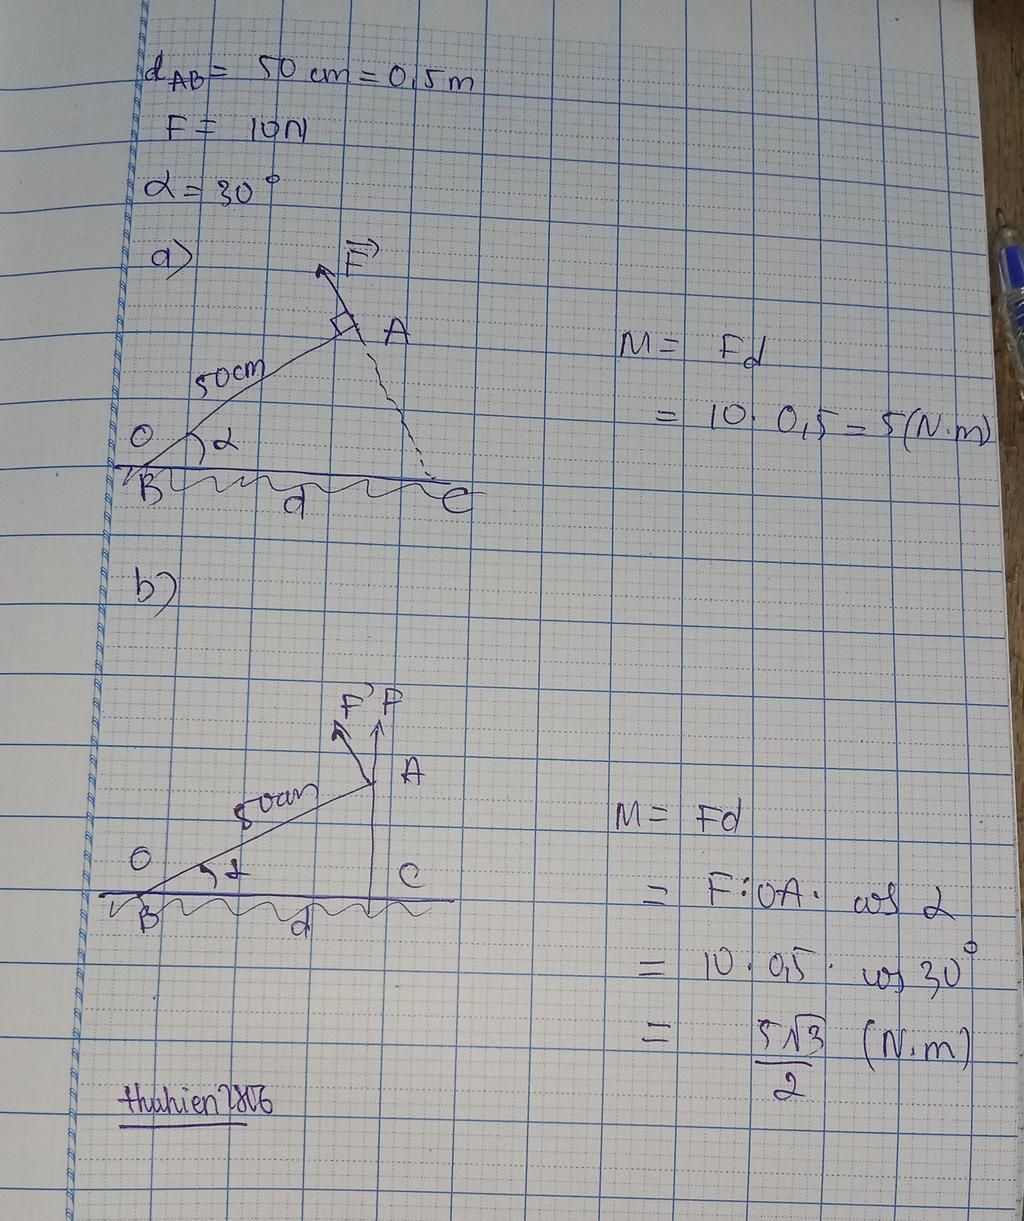 d_AB = 50 cm = 0,5 m
F = 10N
α = 30°
a)
F
A
50cm
O
α
B
d
C
M = Fd
= 10. 0,5 = 5 (N.m)
b)
F' F
A
50cm
O
α
C
B
d
M = Fd
= F.OA. cos α
= 10. 0,5. cos 30°
= 5√3/2 (N.m)
thuhien2806